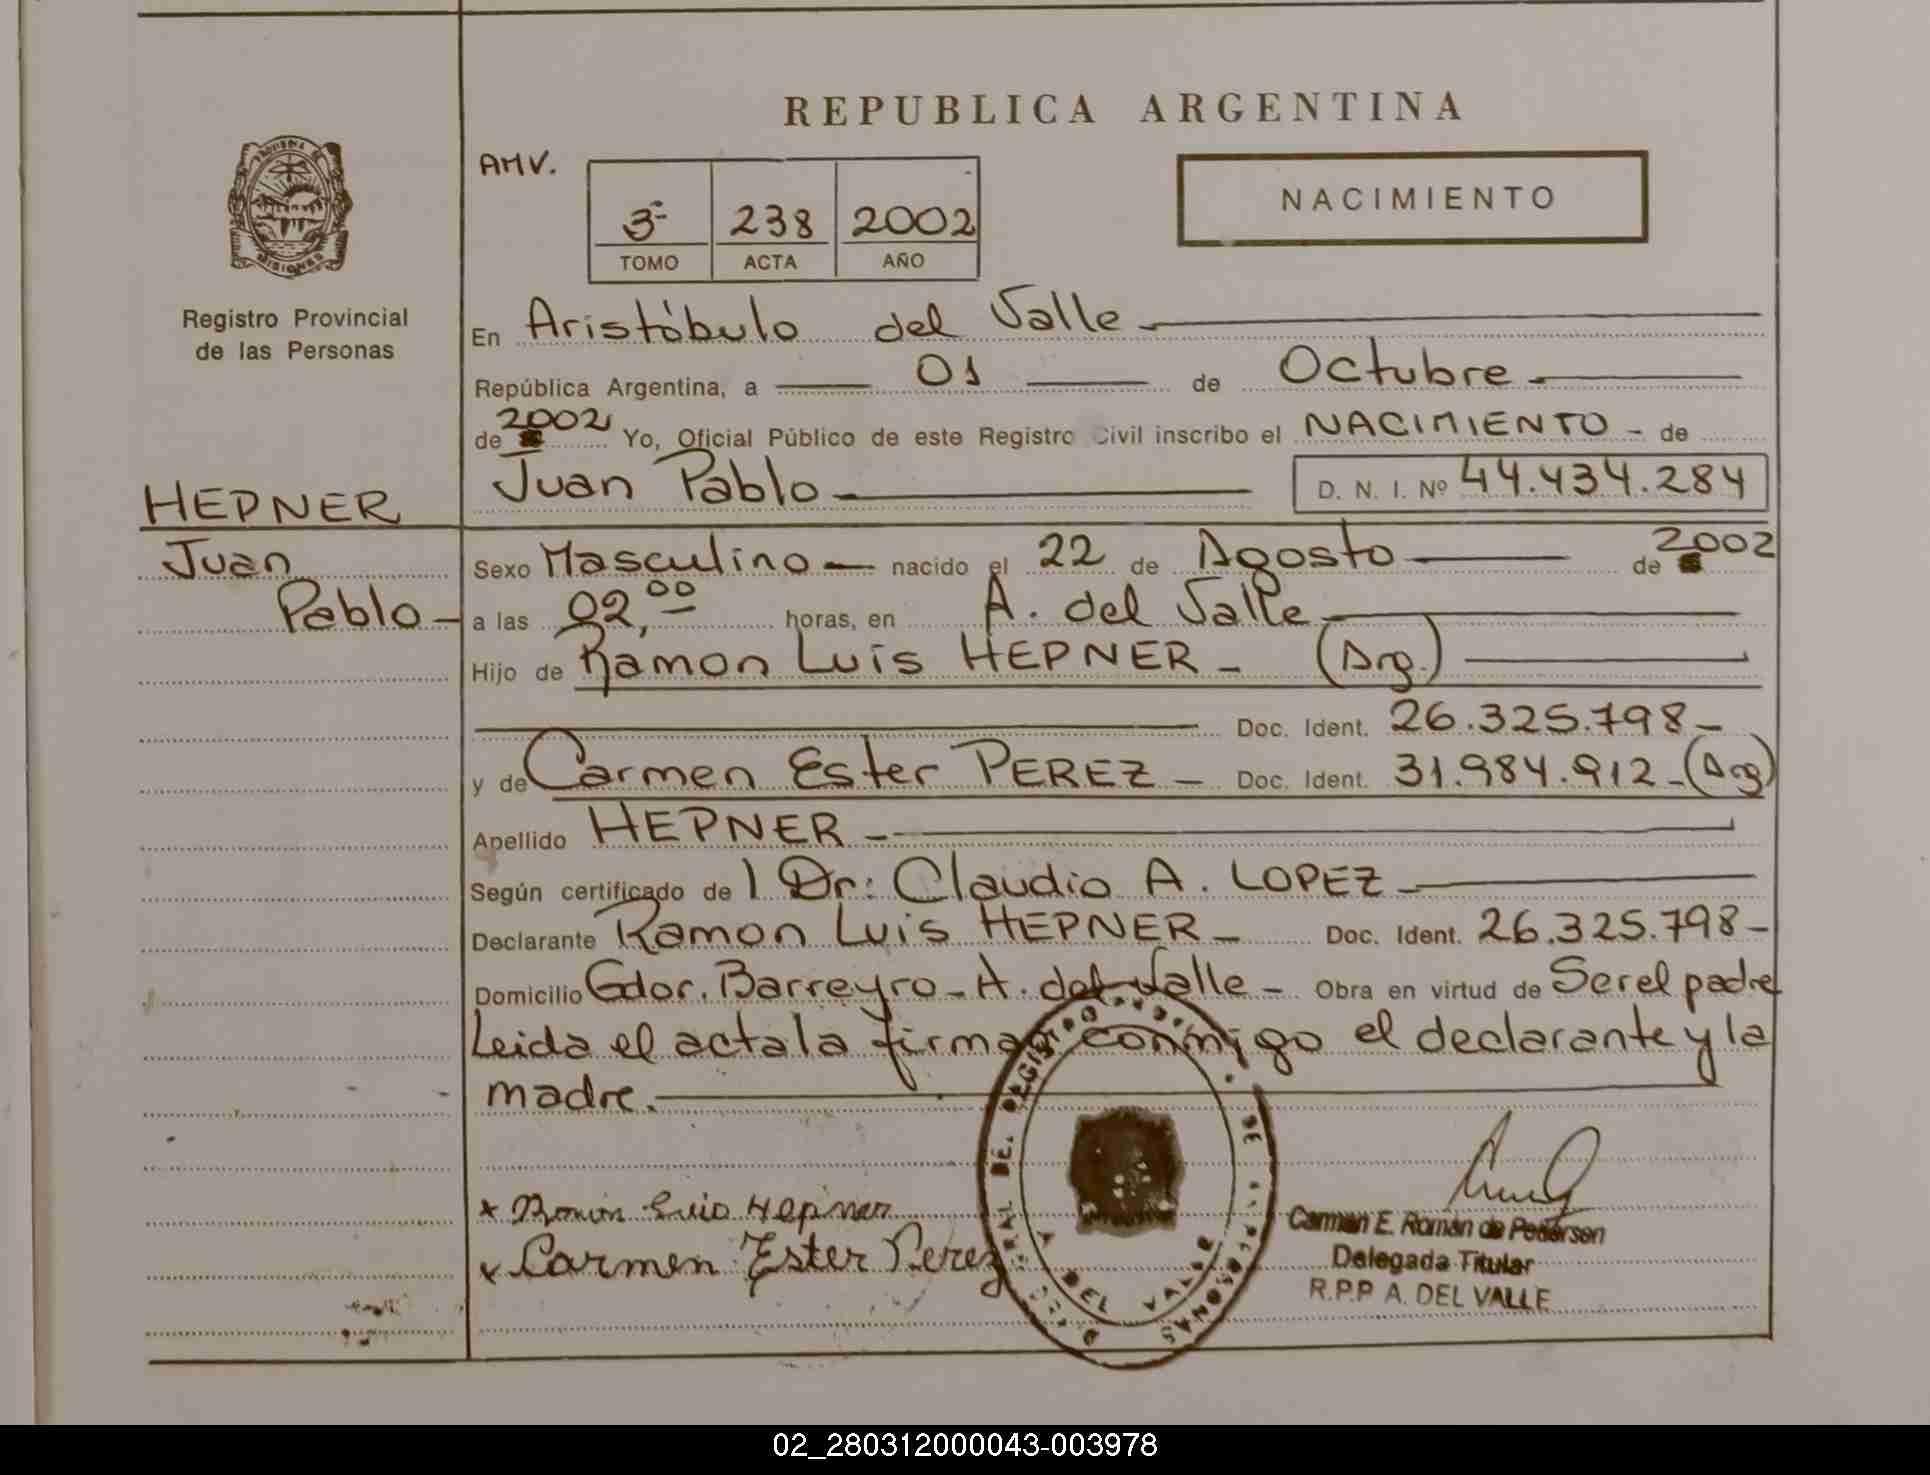 REPUBLICA ARGENTINA
AMV.
3-
238
2002
TOMO
ACTA
AÑO
NACIMIENTO
PROVINCIA DE
MISIONES
Registro Provincial
de las Personas
En Aristóbulo del Valle
República Argentina, a 01 de Octubre
de 2002 Yo, Oficial Público de este Registro Civil inscribo el NACIMIENTO - de
Juan Pablo D. N. I. Nº 44.434.284
HEPNER
Juan
Pablo
Sexo Masculino nacido el 22 de Agosto de 2002
a las 02,00 horas, en A. del Valle
Hijo de Ramon Luis HEPNER - (Arg.)
Doc. Ident. 26.325.798-
y de Carmen Ester PEREZ - Doc. Ident. 31.984.912-(Arg)
Apellido HEPNER -
Según certificado de l Dr: Claudio A. LOPEZ
Declarante Ramon Luis HEPNER - Doc. Ident. 26.325.798-
Domicilio Gdor. Barreyro - A. del Valle - Obra en virtud de Ser el padre
Leida el acta la firman conmigo el declarante y la
madre.
x Ramon Luis Hepner
x Carmen Ester Perez
Carmen E. Román de Pedersen
Delegada Titular
R.P.P A. DEL VALLE
A DEL VALLE
02_280312000043-003978